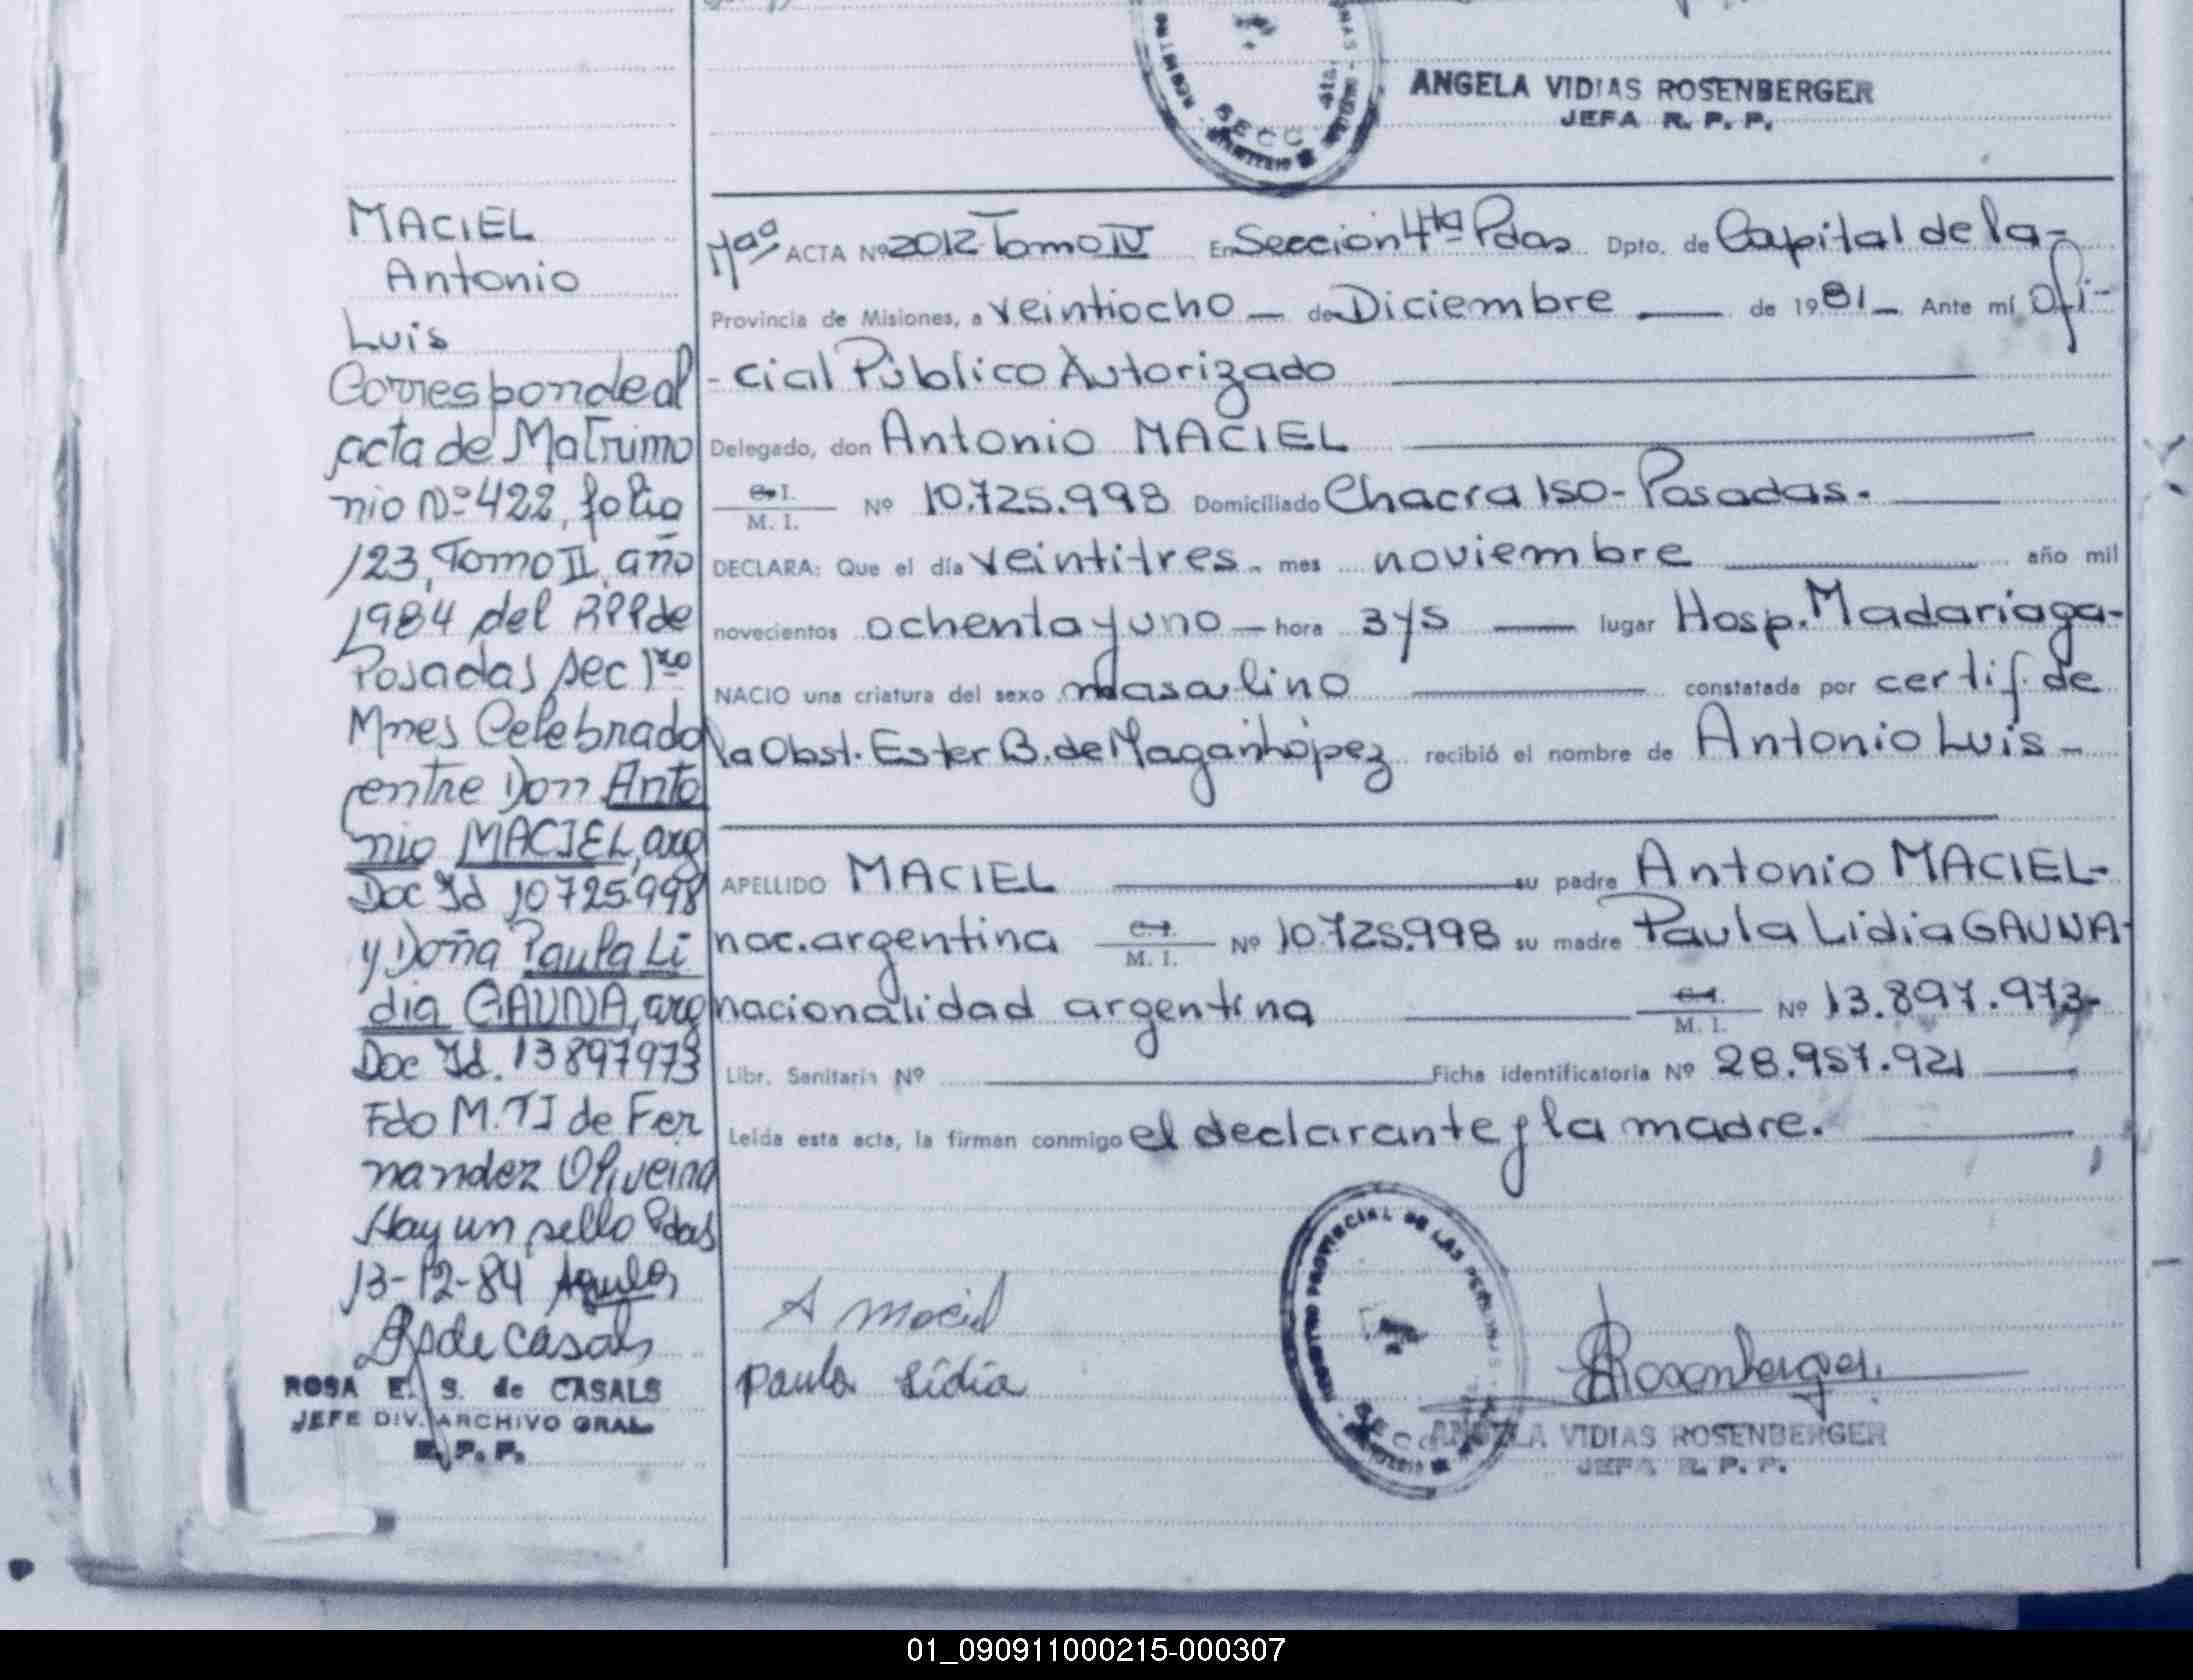 ANGELA VIDIAS ROSENBERGER
JEFA R. P. P.
MACIEL
Antonio
Luis
Corresponde al
acta de Matrimo
nio Nº 422, folio
123, Tomo II, año
1984 del RPP de
Posadas sec 1ra
Mnes Celebrado
entre Don Anto
nio MACIEL, arg
Doc Id 10725.998
y Doña Paula Li
dia GAUNA, arg
Doc Id. 13897973
Fdo M. T J de Fer
nandez Oliveira
Hay un sello Pdas
13-12-84
de Casals
ROSA E. S. de CASALS
JEFE DIV. ARCHIVO GRAL.
R. P. P.
ACTA Nº 2012 Tomo IV En Sección 4ta Pdas Dpto. de Capital de la-
Provincia de Misiones, a veintiocho — de Diciembre — de 1981 — Ante mí Ofi-
-cial Público Autorizado
Delegado, don Antonio MACIEL
C. I. / M. I. Nº 10.725.998 Domiciliado Chacra 150 - Posadas.
DECLARA: Que el día veintitres mes noviembre año mil
novecientos ochenta y uno — hora 3 y 5 — lugar Hosp. Madariaga-
NACIO una criatura del sexo masculino constatada por certif. de
la Obst. Ester B. de recibió el nombre de Antonio Luis -
APELLIDO MACIEL su padre Antonio MACIEL-
nac. argentina C. I. / M. I. Nº 10.725.998 su madre Paula Lidia GAUNA-
nacionalidad argentina C. I. / M. I. Nº 13.897.973-
Libr. Sanitaria Nº Ficha identificatoria Nº 28.957.921
Leída esta acta, la firman conmigo el declarante y la madre.
A Maciel
Paula Lidia
REGISTRO PROVINCIAL DE LAS PERSONAS
Rosenberger
ANGELA VIDIAS ROSENBERGER
JEFA R. P. P.
01_090911000215-000307